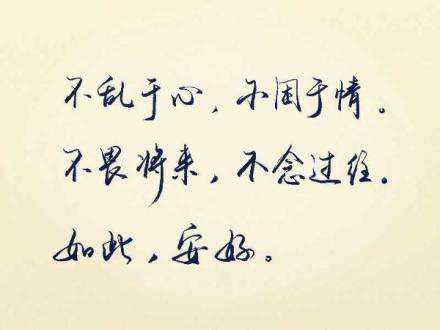 不乱于心，不困于情。
不畏将来，不念过经。
如此，安好。